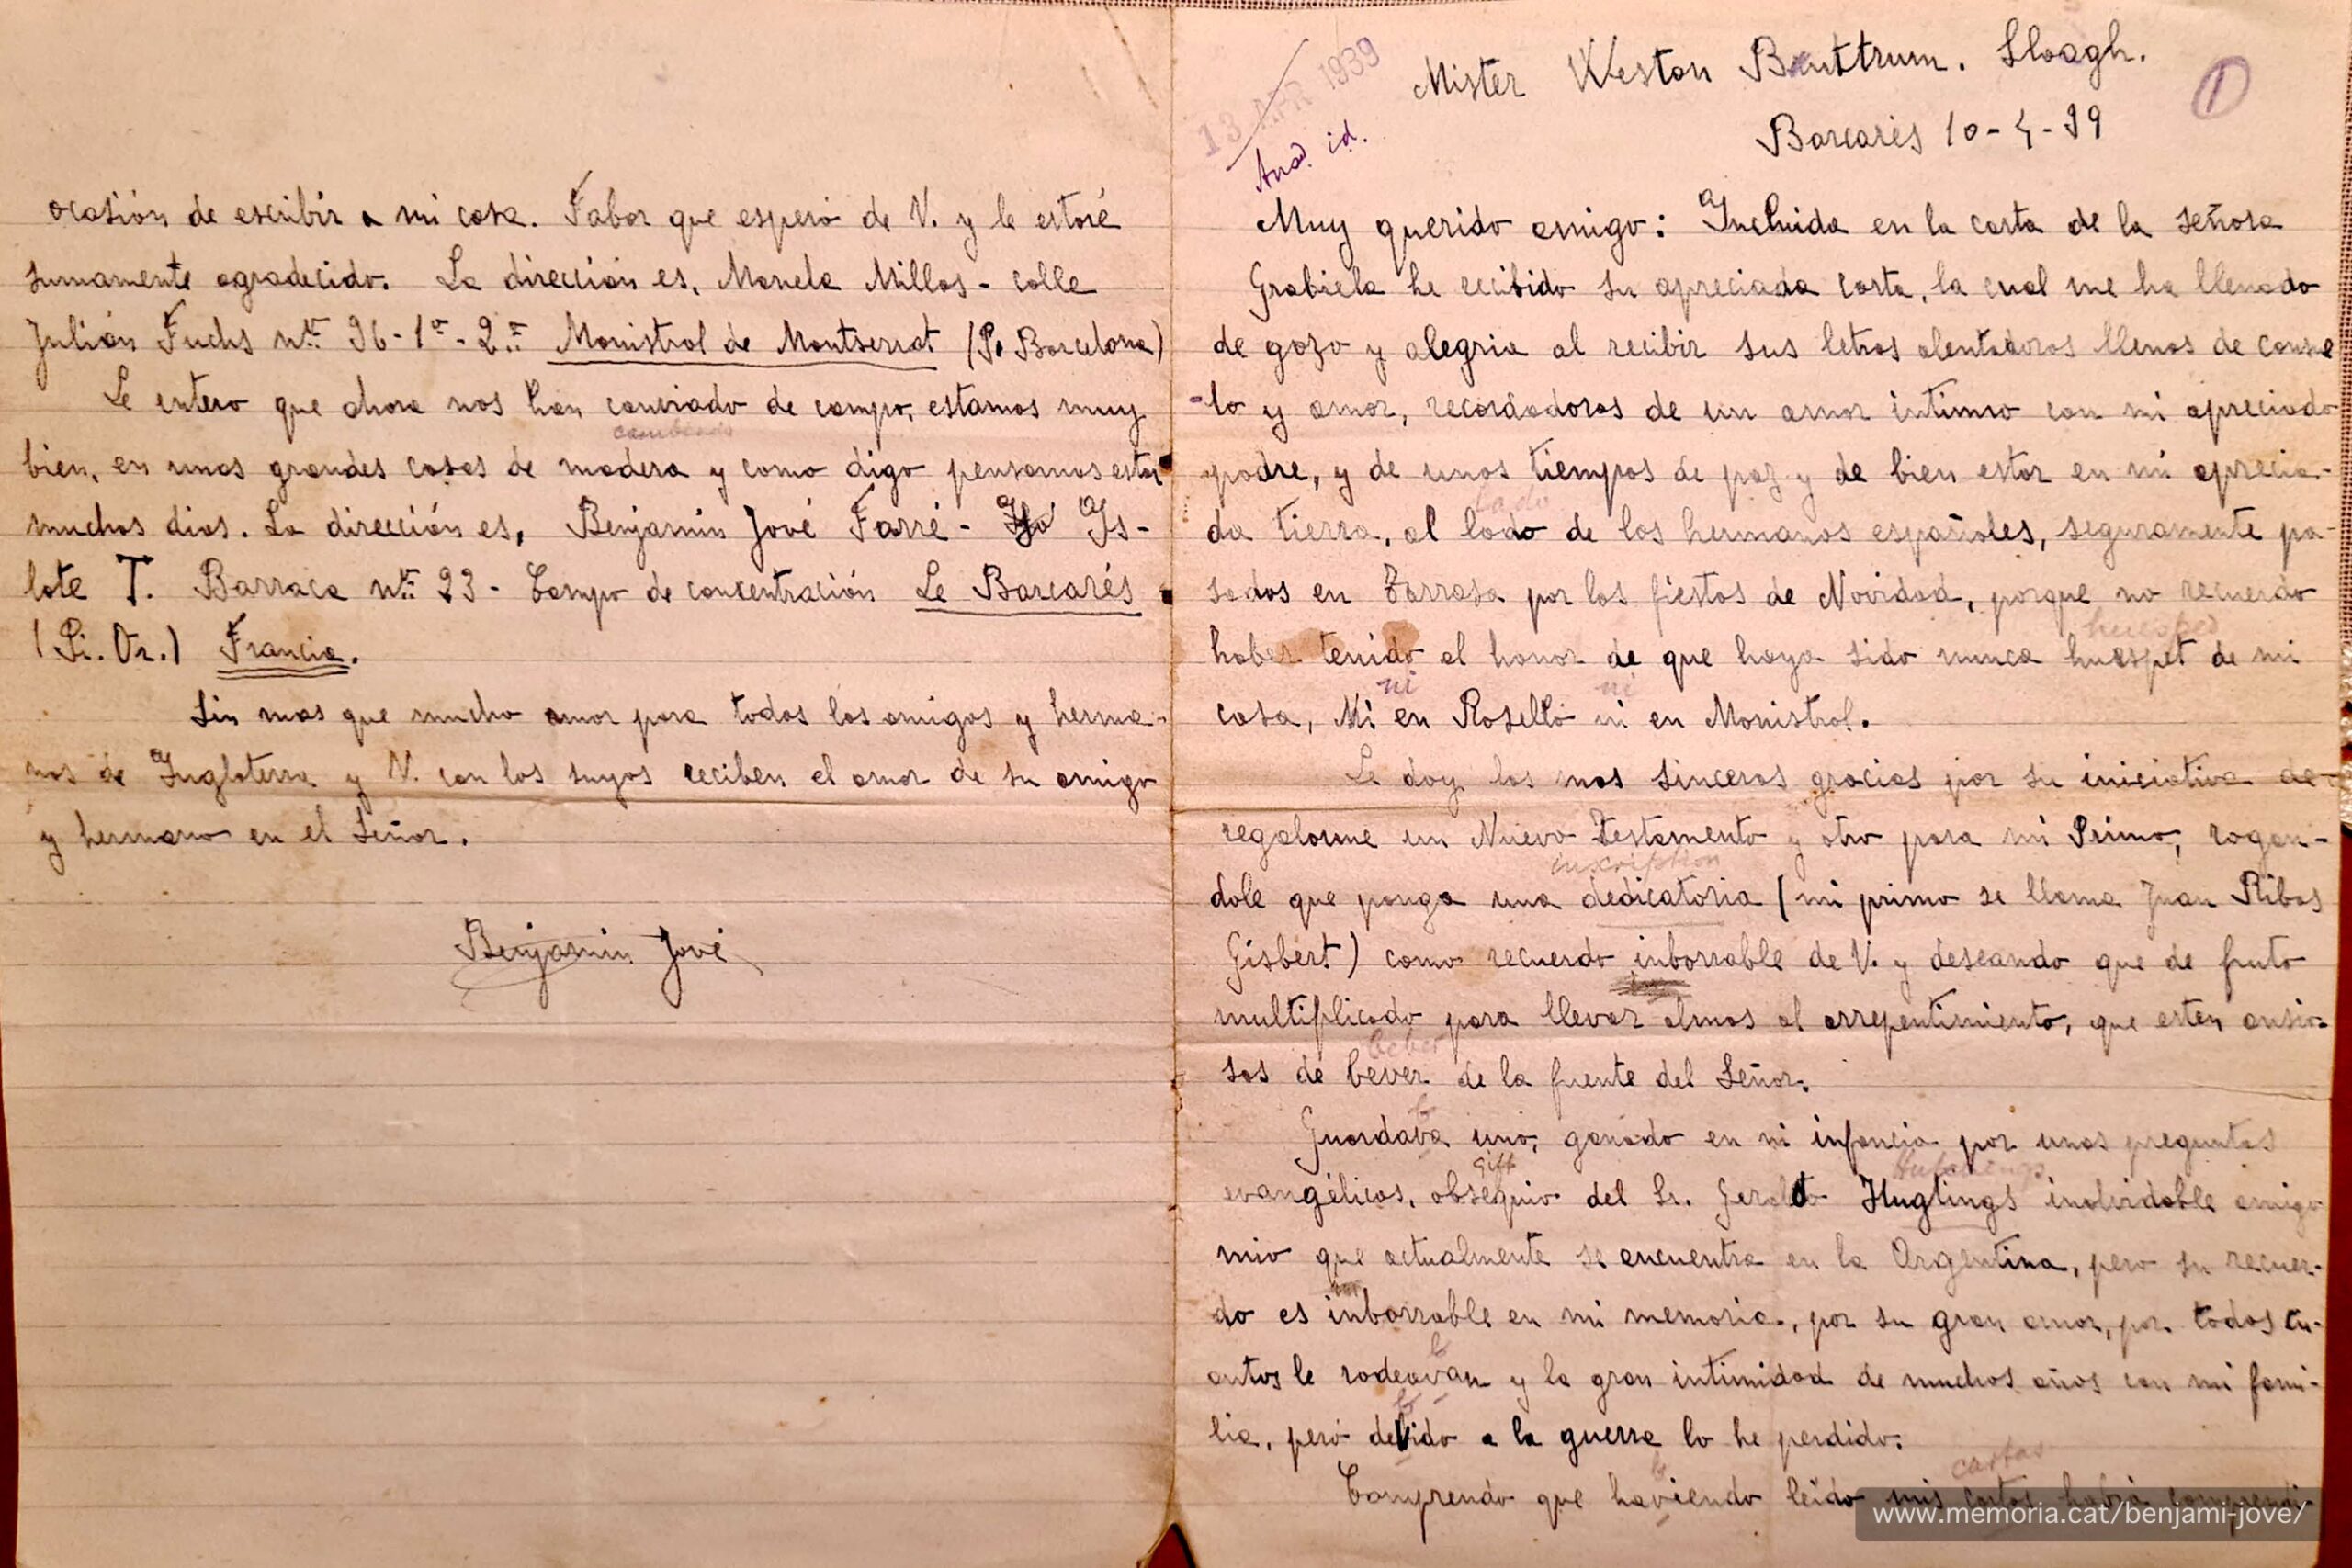 Mister Weston Buttrum. Sloagh.
1
Barcarés 10-4-39
13 APR 1939
id.
Muy querido amigo: Incluida en la carta de la señora
Grabiela he recibido su apreciada carta, la cual me ha llenado
de gozo y alegria al recibir sus letras alentadoras llenas de consue
-lo y amor, recordadoras de un amor intimo con mi apreciado
padre, y de unos tiempos de paz y de bien estar en mi aprecia-
lado
da tierra, al lado de los hermanos españoles, seguramente pa-
sados en Tarrasa por las fiestas de Navidad, porque no recuerdo
huesped
haber tenido el honor de que haya sido nunca huespet de mi
ni ni
casa, Mi en Roselló ni en Monistrol.
Le doy las mas sinceras gracias por su iniciativa de
regalarme un Nuevo Testamento y otro para mi Primo, rogan-
inscription
dole que ponga una dedicatoria (mi primo se llama Juan Ribas
Gisbert) como recuerdo inborrable de V. y deseando que de fruto
multiplicado para llevar almas al arrepentimiento, que esten ansio-
beber
sas de bever de la fuente del Señor.
b
Guardava uno, ganado en mi infancia por unas preguntas
gift
evangélicas, obsequio del Sr. Geraldo Huglings inolvidable amigo
mio que actualmente se encuentra en la Argentina, pero su recuer-
im
do es inborrable en mi memoria, por su gran amor, por todos cu-
b
antos le rodeavan y la gran intimidad de muchos años con mi fami-
b
lia, peró devido a la guerra lo he perdido.
b cartas
Comprendo que haviendo leido mis cartas habrá comprendi-
ocasión de escribir a mi casa. Fabor que esperó de V. y le estaré
sumamente agradecido. La dirección es, Manela Millas - calle
Julián Fuchs nº 36-1º-2ª Monistrol de Montserrat (P. Barcelona)
Le entero que ahora nos han canviado de campo, estamos muy
cambiado
bien, en unas grandes casas de madera y como digo pensamos estar
muchos dias. La dirección es, Benjamin Jové Farré - Is-
lote T. Barraca nº 23 - Campo de concentración Le Barcarés
(Pi. Or.) Francia.
Sin mas que mucho amor para todos los amigos y herma-
nos de Inglaterra y V. con los suyos reciben el amor de su amigo
y hermano en el Señor.
Benjamin Jové
www.memoria.cat/benjami-jove/